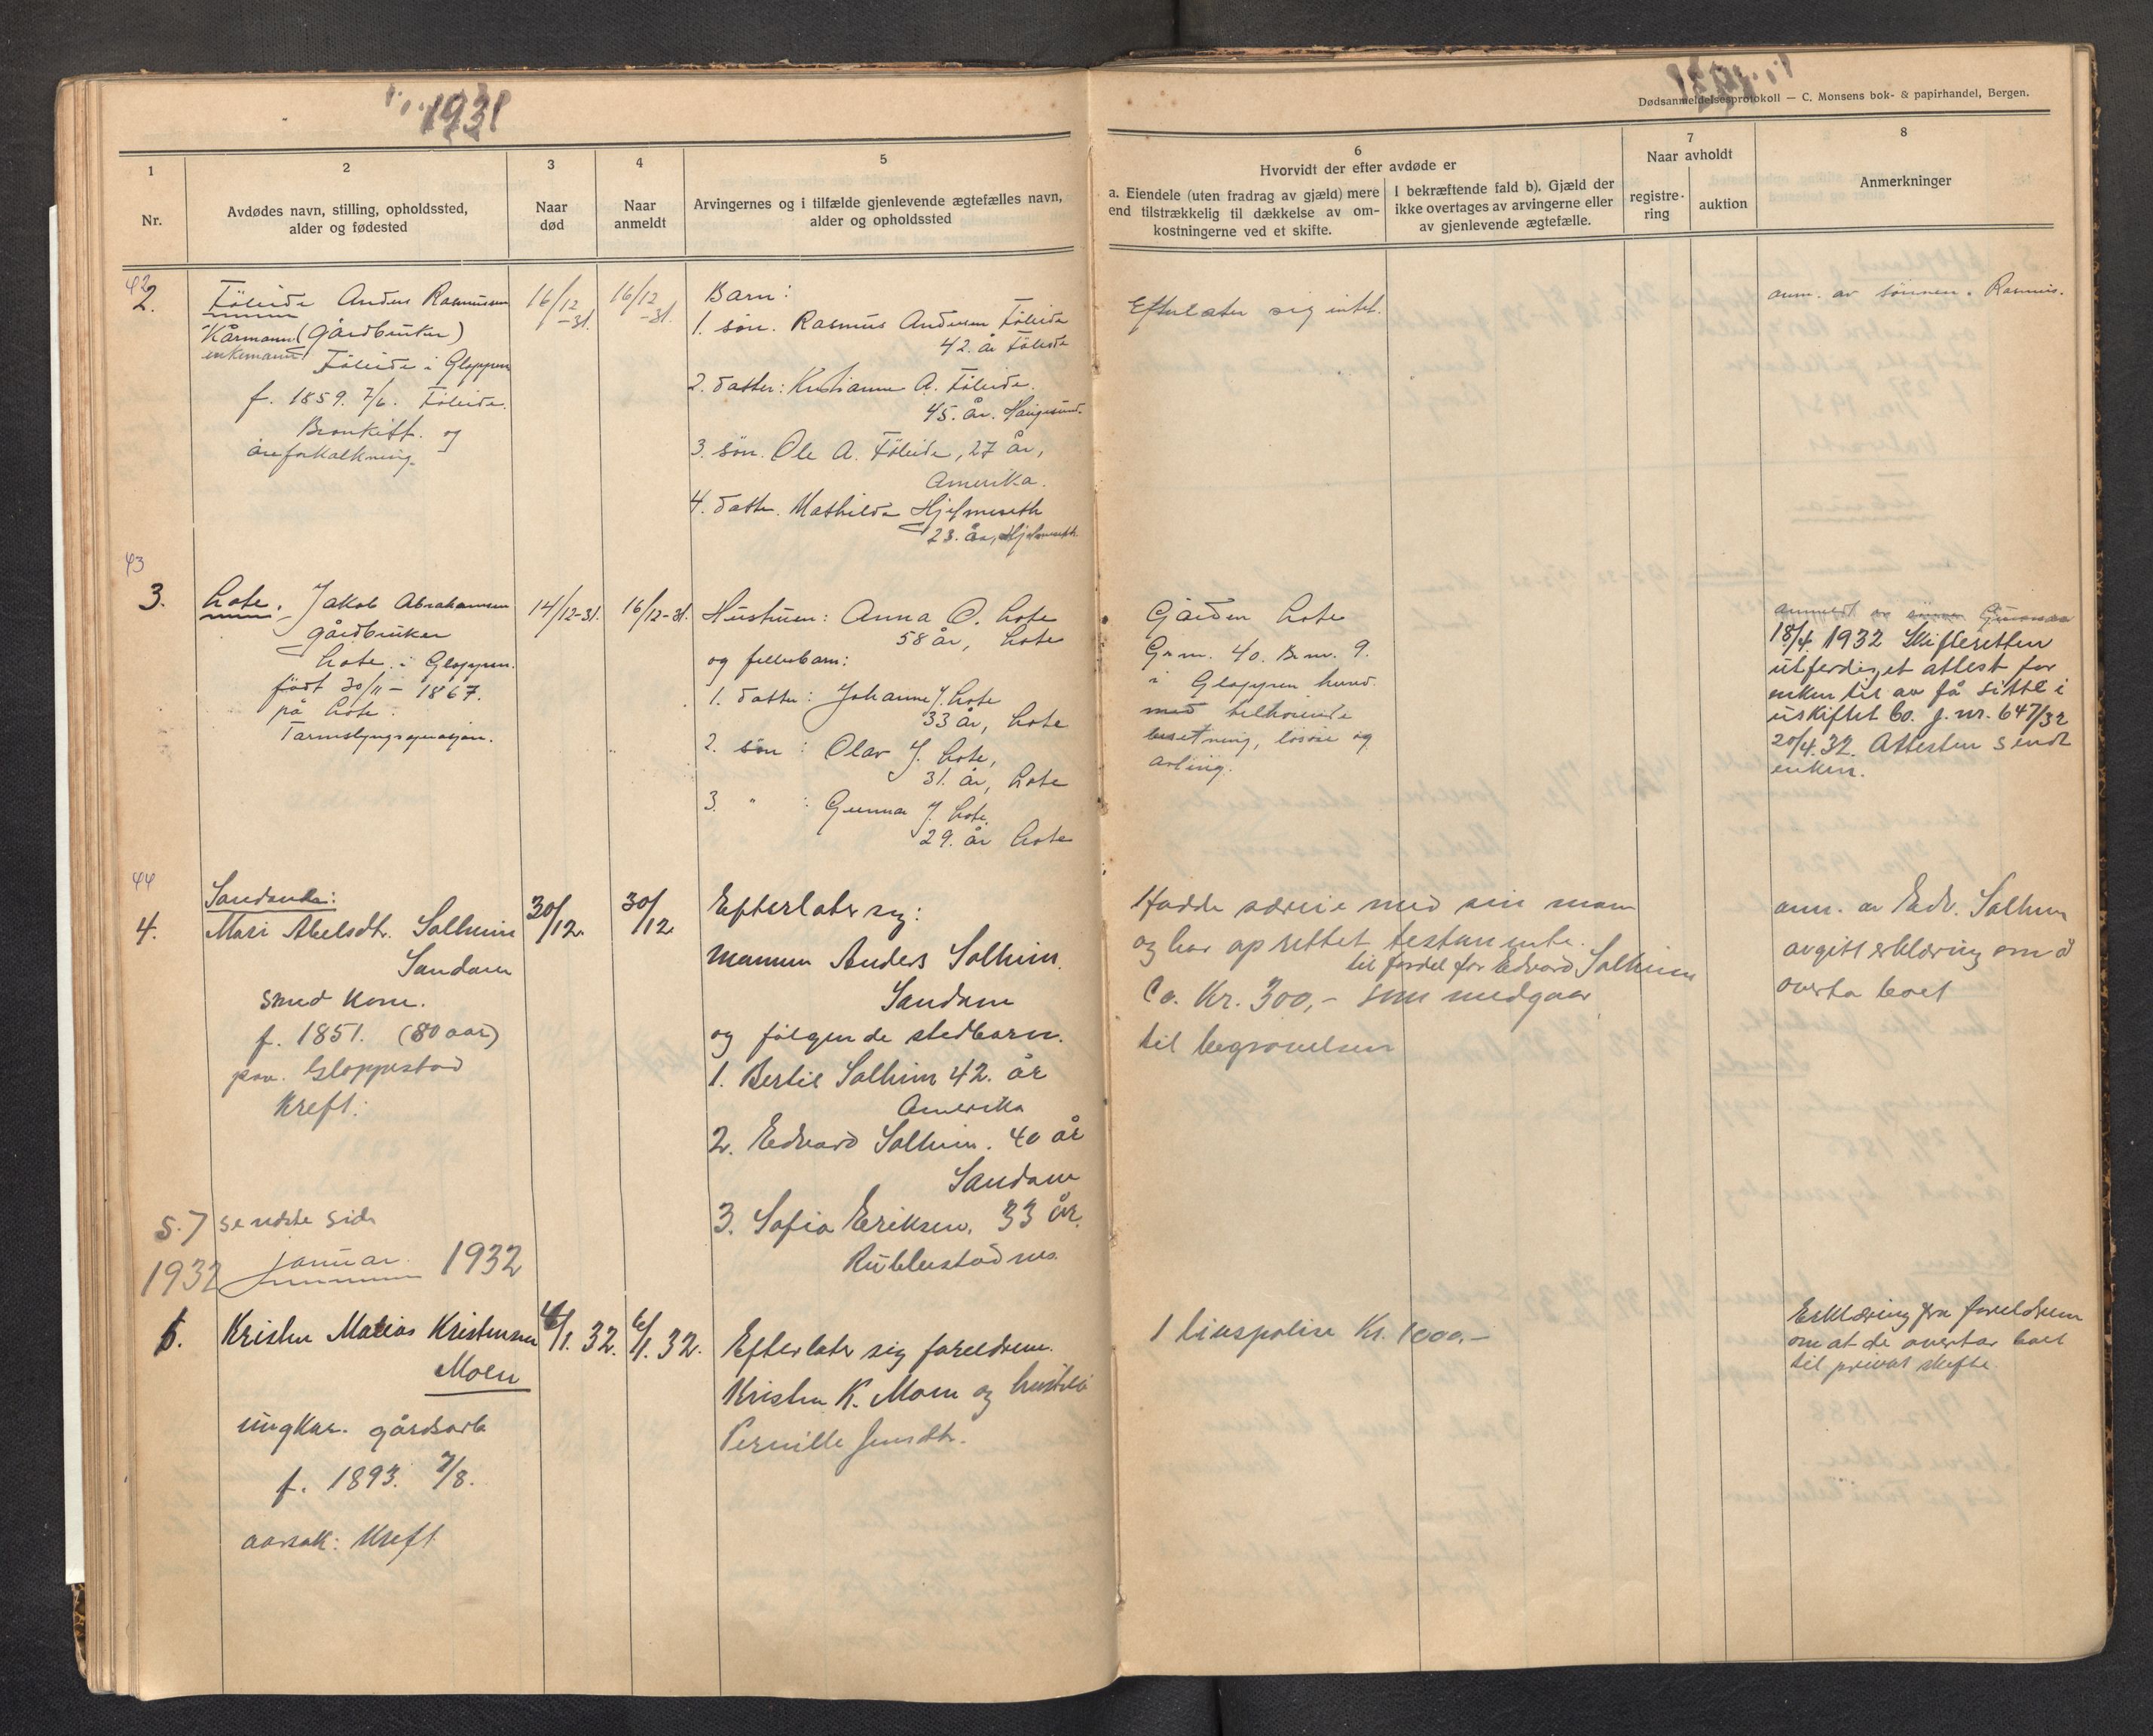 1931
1931
Dødsanmeldelsesprotokoll — C. Monsens bok- & papirhandel, Bergen.
1
Nr.
2
Avdødes navn, stilling, opholdssted,
alder og fødested
3
Naar
død
4
Naar
anmeldt
5
Arvingernes og i tilfælde gjenlevende ægtefælles navn,
alder og opholdssted
6
Hvorvidt der efter avdøde er
a. Eiendele (uten fradrag av gjæld) mere
end tilstrækkelig til dækkelse av om-
kostningerne ved et skifte.
I bekræftende fald b). Gjæld der
ikke overtages av arvingerne eller
av gjenlevende ægtefælle.
7
Naar avholdt
registre-
ring
auktion
8
Anmerkninger
42
2.
Föleide Anders Rasmussen
Kårmann (Gårdbruker)
enkemann
Föleide i Gloppen
f. 1859. 7/6. Föleide.
Bronkitt. og
åreforkalkning.
16/12
-31.
16/12
-31.
Barn:
1. søn. Rasmus Andersen Föleide
42. år Föleide
2. datter: Kristianne A. Föleide.
45. år. Haugesund.
3. søn. Ole A. Föleide, 27 år,
Amerika.
4. datter. Mathilde Hjelmeseth
23. år, Hjelmeseth
Efterlater sig intet.
anm. av sønnen. Rasmus.
43
3.
Lote. Jakob Abrahamsen
gårdbruker
Lote i Gloppen.
født 30/11 - 1867.
på Lote.
Tarmslyngoperasjon.
14/12-31.
16/12-31.
Hustruen: Anna O. Lote
58 år, Lote
og fellesbarn:
1. datter: Johanne J. Lote
33 år, Lote
2. søn : Olav J. Lote,
31. år, Lote
3. " : Gunnar J. Lote.
29. år Lote
Gården Lote
Gnr. 40. Bnr. 9.
i Gloppen herred.
med tilhørende
besetning, løsøre og
avling.
anmeldt av sønnen Gunnar
18/4. 1932 Skifteretten
utferdiget attest for
enken til av få sitte i
uskiftet bo. j. nr. 647/32
20/4. 32. Attesten sendt
enken.
44
4.
Sandane:
Mari Abelsdtr. Solheim
Sandane
smed kone.
f. 1851. (80 aar)
paa. Gloppestad
Kreft.
30/12.
30/12
Efterlater sig:
mannen Anders Solheim.
Sandane
og følgende stedbarn.
1. Bertil Solheim 42. år
Amerika
2. Edvard Solheim. 40 år
Sandane
3. Sofia Eriksen. 33 år.
Hadde særeie med sin man
og har oprettet testamente.
til fordel for Edvard Solheim
Ca. Kr. 300,- som medgaar
til begravelsen
anm. av Edv. Solheim
avgitt erklæring om å
overta boet
S. 7 sendte side
1932 januar. 1932
1.
Kristen Matias Kristensen
Moen
ungkar. gårdsarb
f. 1893. 7/8.
aarsak: Kreft
4/1. 32.
6/1. 32.
Efterlater sig foreldrene.
Kristen K. Moen og hustru
Pernille Jensdtr.
1 livspolise Kr. 1000.-
Erklæring fra foreldrene
om at de overtar boet
til privat skifte.